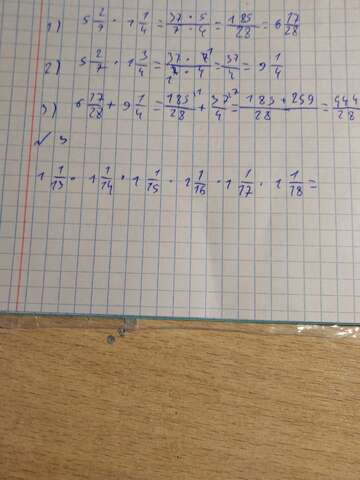 1) 5 2/7 · 1 1/4 = 37 · 5 / 7 · 4 = 185/28 = 6 17/28
2) 5 2/7 · 1 3/4 = 37 · 7 / 7 · 4 = 37/4 = 9 1/4
3) 6 17/28 + 9 1/4 = 185/28 + 37/4 = 185 + 259 / 28 = 444/28
1 1/13 · 1 1/14 · 1 1/15 · 1 1/16 · 1 1/17 · 1 1/18 =